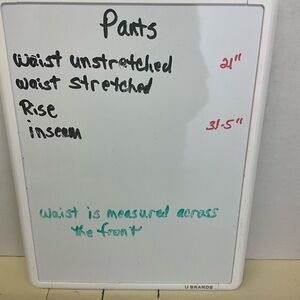 Pants
Waist unstretched 21"
waist stretched
Rise
inseam 31.5"
Waist is measured across
the front
U BRANDS